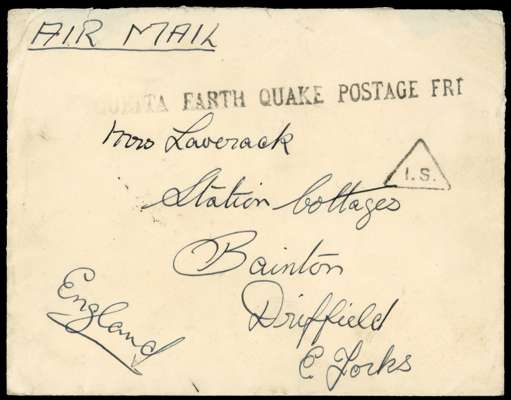 AIR MAIL
QUETTA EARTH QUAKE POSTAGE
Mrs Laverack
I.S.
Station Cottages
Bainton
Driffield
E Yorks
England